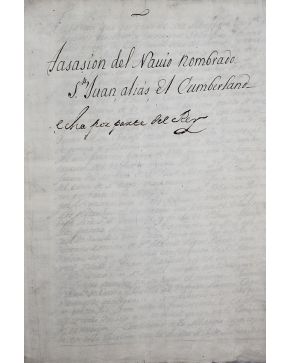 tasasion del Navio nombrado
Sn Juan, alias, el Cumberland
echa por parte del Rey